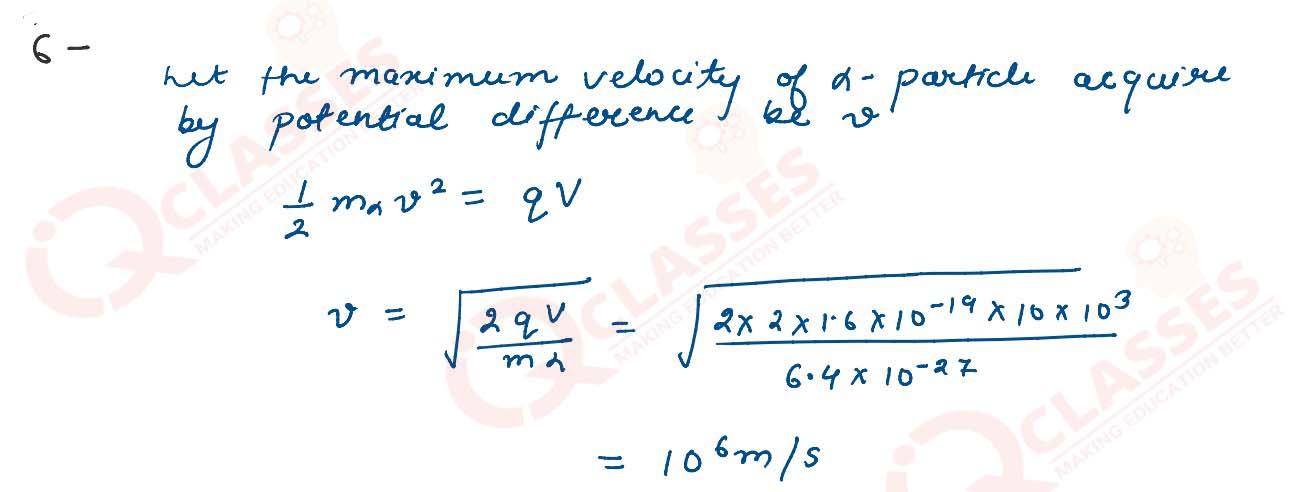 6 -
Let the maximum velocity of α- particle acquire
by potential difference be v
1/2 mα v² = qV
v = √(2qV / mα) = √(2 × 2 × 1.6 × 10⁻¹⁹ × 10 × 10³ / 6.4 × 10⁻²⁷)
= 10⁶ m/s
iQ CLASSES
MAKING EDUCATION BETTER
iQ CLASSES
MAKING EDUCATION BETTER
iQ CLASSES
MAKING EDUCATION BETTER